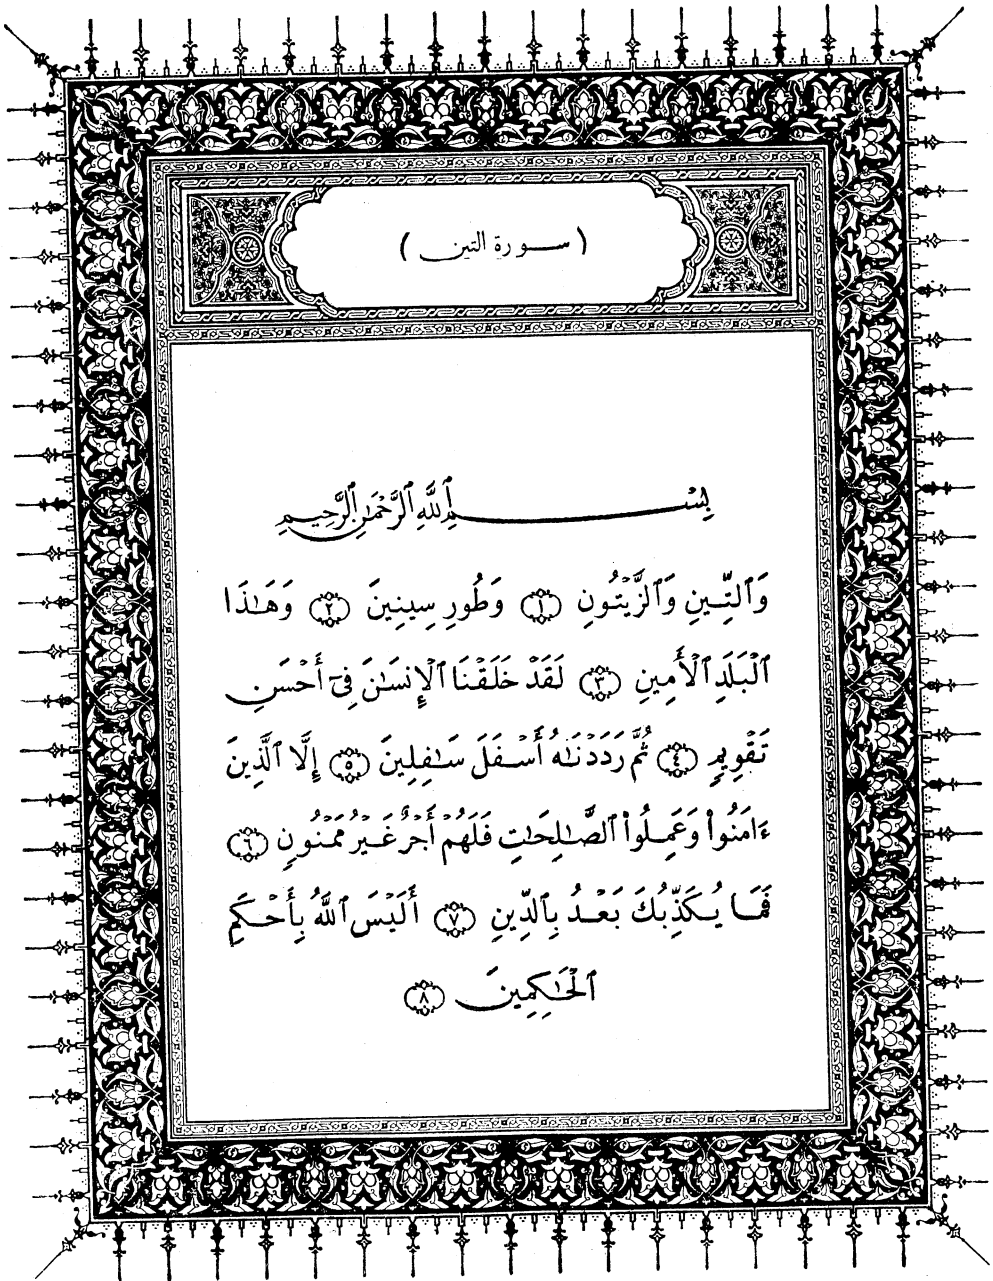 ( سورة التين )
بِسْمِ ٱللَّهِ ٱلرَّحْمَٰنِ ٱلرَّحِيمِ
وَٱلتِّينِ وَٱلزَّيْتُونِ ١ وَطُورِ سِينِينَ ٢ وَهَٰذَا
ٱلْبَلَدِ ٱلْأَمِينِ ٣ لَقَدْ خَلَقْنَا ٱلْإِنسَٰنَ فِىٓ أَحْسَنِ
تَقْوِيمٍ ٤ ثُمَّ رَدَدْنَٰهُ أَسْفَلَ سَٰفِلِينَ ٥ إِلَّا ٱلَّذِينَ
ءَامَنُوا۟ وَعَمِلُوا۟ ٱلصَّٰلِحَٰتِ فَلَهُمْ أَجْرٌ غَيْرُ مَمْنُونٍ ٦
فَمَا يُكَذِّبُكَ بَعْدُ بِٱلدِّينِ ٧ أَلَيْسَ ٱللَّهُ بِأَحْكَمِ
ٱلْحَٰكِمِينَ ٨